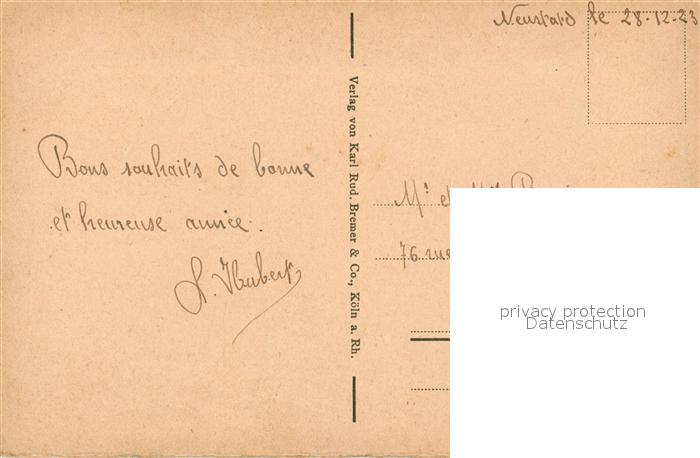 Neustadt le 28-12-23
Bons souhaits de bonne
et heureuse année.
Hubert
Verlag von Karl Rud. Bremer & Co., Köln a. Rh.
Mr et
76 rue
privacy protection
Datenschutz